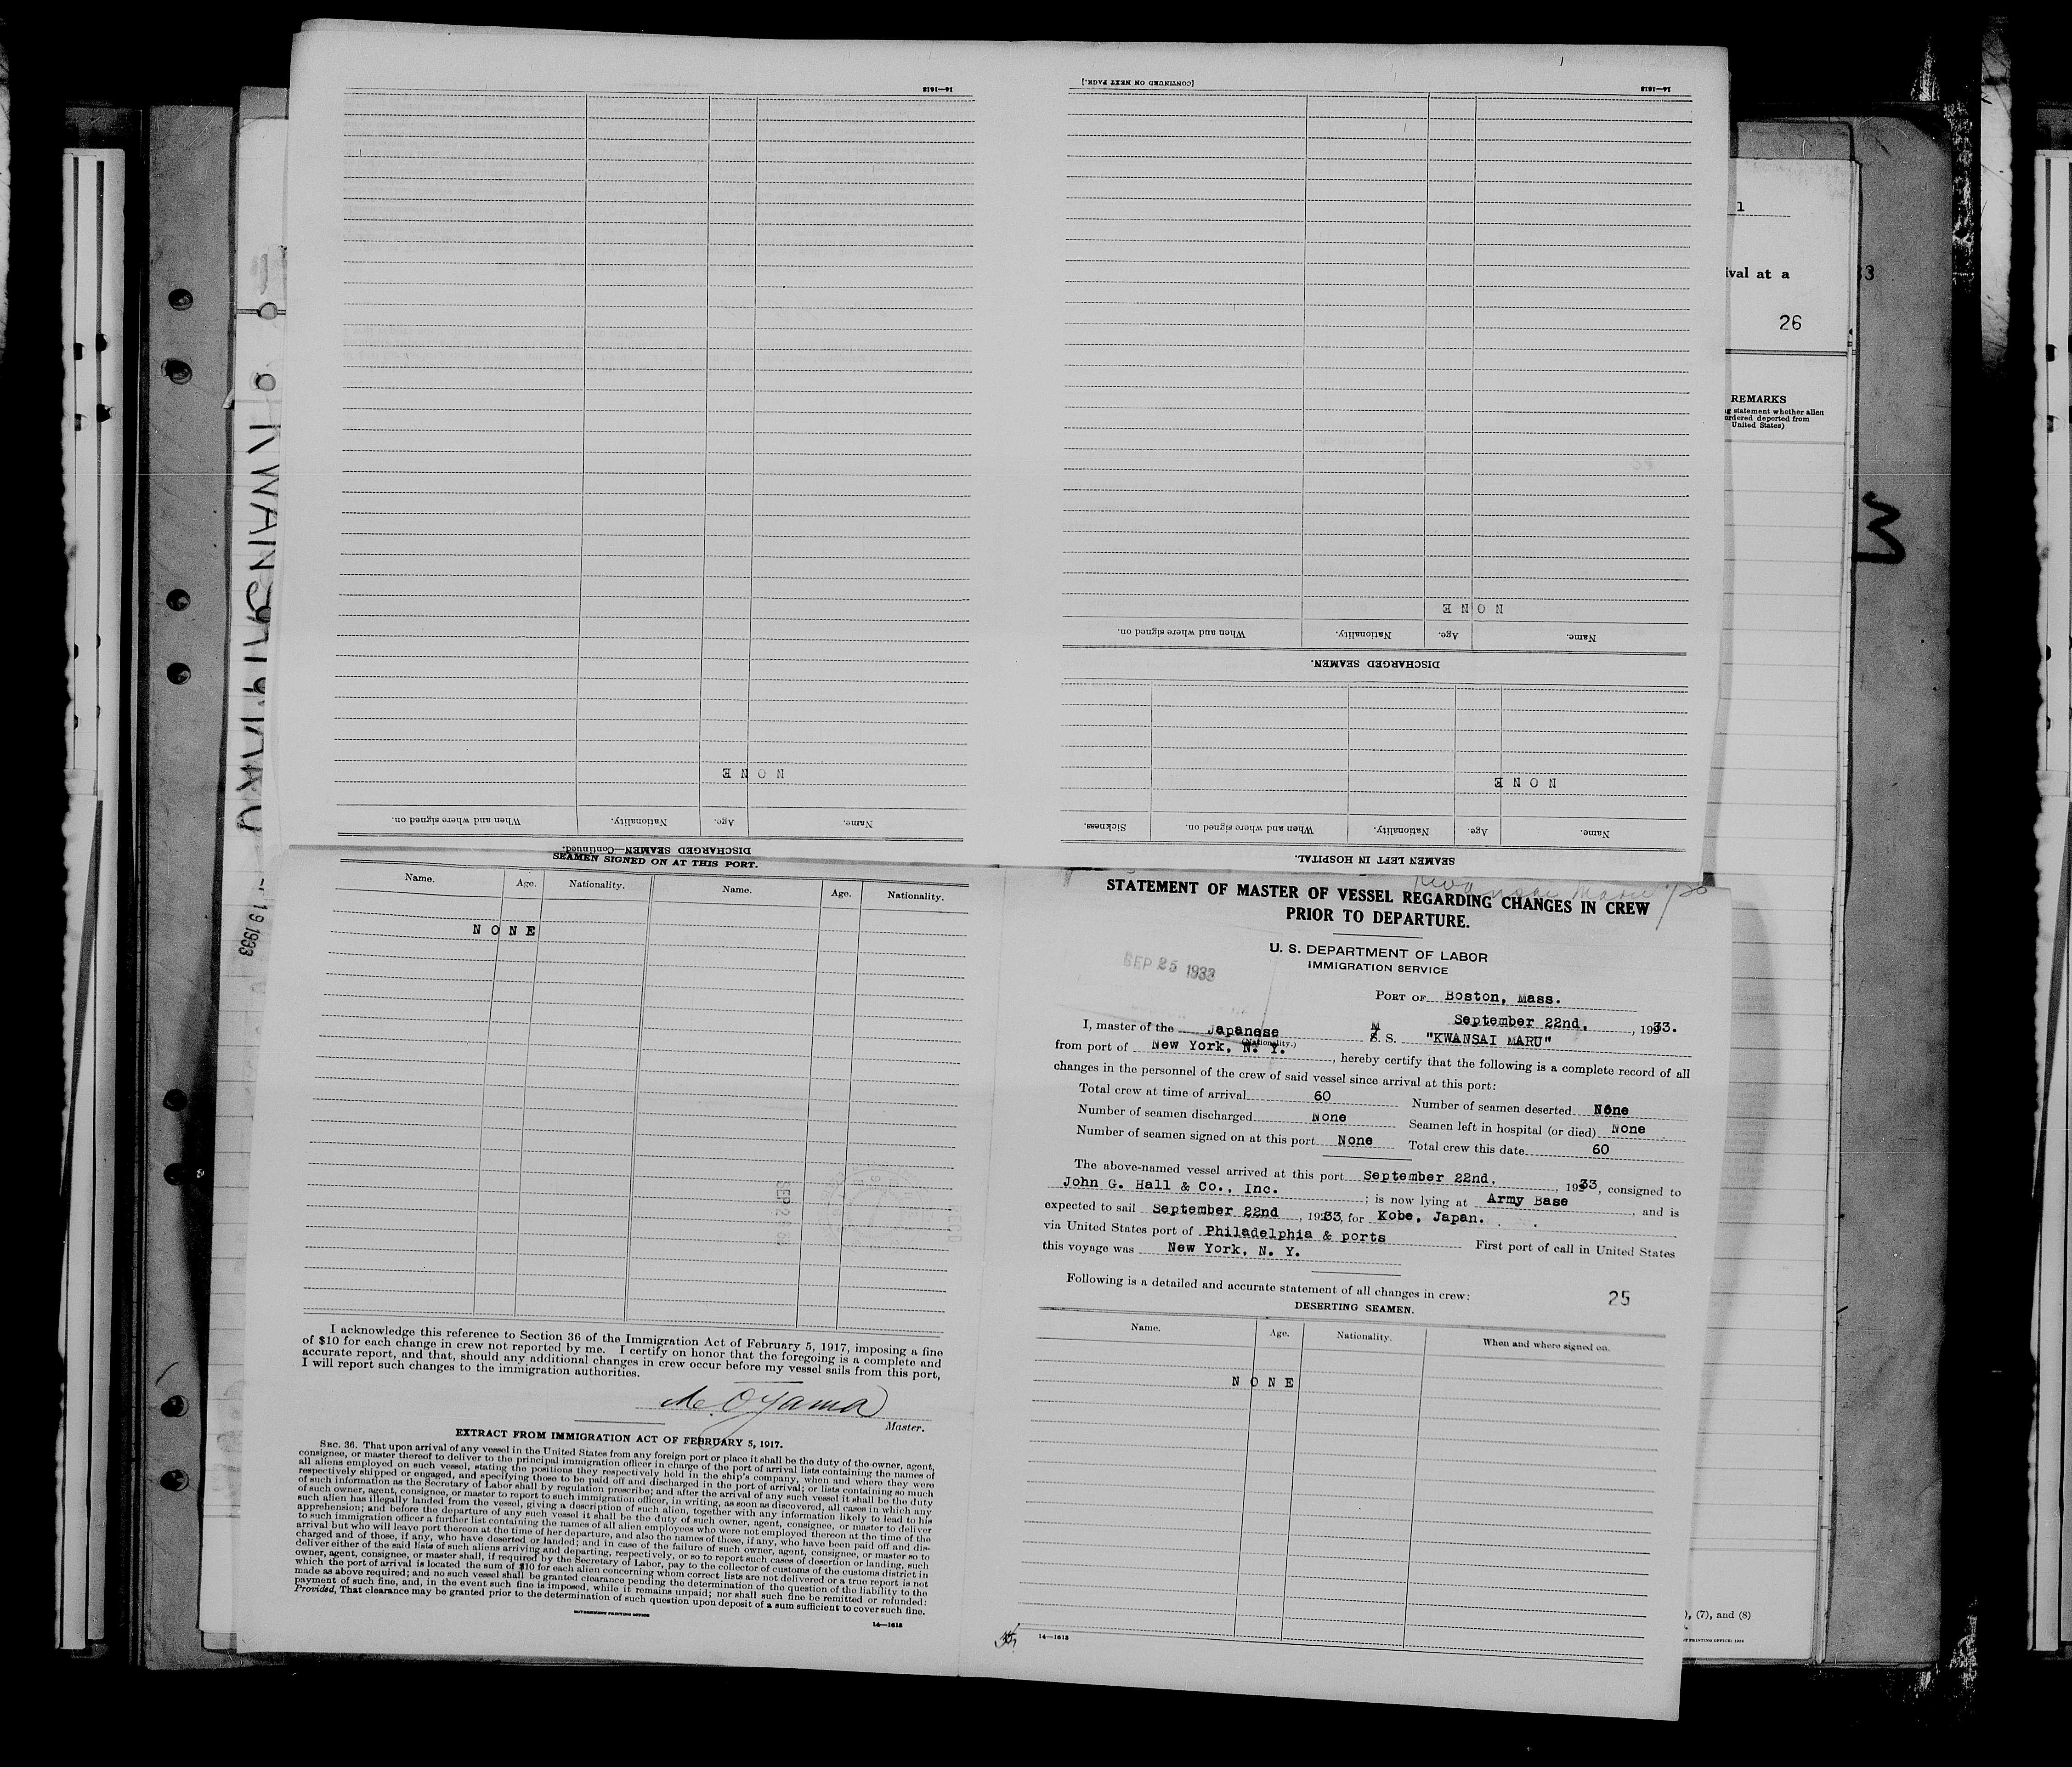 14—1613
[CONTINUED ON NEXT PAGE.]
14—1613
NONE
Name. Age. Nationality. When and where signed on.
DISCHARGED SEAMEN—Continued.
NONE
Name. Age. Nationality. When and where signed on.
DISCHARGED SEAMEN.
NONE
Name. Age. Nationality. When and where signed on. Sickness.
SEAMEN LEFT IN HOSPITAL.
1
ival at a
33
26
REMARKS
statement whether alien
ordered deported from
United States)
3
), (7), and (8)
KWANSAI MARU
19 1933
SEAMEN SIGNED ON AT THIS PORT.
Name. Age. Nationality. Name. Age. Nationality.
NONE
I acknowledge this reference to Section 36 of the Immigration Act of February 5, 1917, imposing a fine
of $10 for each change in crew not reported by me. I certify on honor that the foregoing is a complete and
accurate report, and that, should any additional changes in crew occur before my vessel sails from this port,
I will report such changes to the immigration authorities.
M. Oyama
Master.
EXTRACT FROM IMMIGRATION ACT OF FEBRUARY 5, 1917.
SEC. 36. That upon arrival of any vessel in the United States from any foreign port or place it shall be the duty of the owner, agent,
consignee, or master thereof to deliver to the principal immigration officer in charge of the port of arrival lists containing the names of
all aliens employed on such vessel, stating the positions they respectively hold in the ship's company, when and where they were
respectively shipped or engaged, and specifying those to be paid off and discharged in the port of arrival; or lists containing so much
of such information as the Secretary of Labor shall by regulation prescribe; and after the arrival of any such vessel it shall be the duty
of such owner, agent, consignee, or master to report to such immigration officer, in writing, as soon as discovered, all cases in which any
such alien has illegally landed from the vessel, giving a description of such alien, together with any information likely to lead to his
apprehension; and before the departure of any such vessel it shall be the duty of such owner, agent, consignee, or master to deliver
to such immigration officer a further list containing the names of all alien employees who were not employed thereon at the time of the
arrival but who will leave port thereon at the time of her departure, and also the names of those, if any, who have been paid off and dis-
charged and of those, if any, who have deserted or landed; and in case of the failure of such owner, agent, consignee, or master so to
deliver either of the said lists of such aliens arriving and departing, respectively, or so to report such cases of desertion or landing, such
owner, agent, consignee, or master shall, if required by the Secretary of Labor, pay to the collector of customs of the customs district in
which the port of arrival is located the sum of $10 for each alien concerning whom correct lists are not delivered or a true report is not
made as above required; and no such vessel shall be granted clearance pending the determination of the question of the liability to the
payment of such fine, and, in the event such fine is imposed, while it remains unpaid; nor shall such fine be remitted or refunded:
Provided, That clearance may be granted prior to the determination of such question upon deposit of a sum sufficient to cover such fine.
GOVERNMENT PRINTING OFFICE
14—1613
Kwansai Maru
STATEMENT OF MASTER OF VESSEL REGARDING CHANGES IN CREW
PRIOR TO DEPARTURE.
U. S. DEPARTMENT OF LABOR
IMMIGRATION SERVICE
SEP 25 1933
PORT OF Boston, Mass.
September 22nd, 1933.
I, master of the Japanese M S. S. "KWANSAI MARU"
(Nationality.)
from port of New York, N. Y., hereby certify that the following is a complete record of all
changes in the personnel of the crew of said vessel since arrival at this port:
Total crew at time of arrival 60 Number of seamen deserted None
Number of seamen discharged None Seamen left in hospital (or died) None
Number of seamen signed on at this port None Total crew this date 60
The above-named vessel arrived at this port September 22nd, 1933, consigned to
John G. Hall & Co., Inc.; is now lying at Army Base, and is
expected to sail September 22nd, 1933, for Kobe, Japan.
via United States port of Philadelphia & ports First port of call in United States
this voyage was New York, N. Y.
Following is a detailed and accurate statement of all changes in crew:
25
DESERTING SEAMEN.
Name. Age. Nationality. When and where signed on.
NONE
14—1613